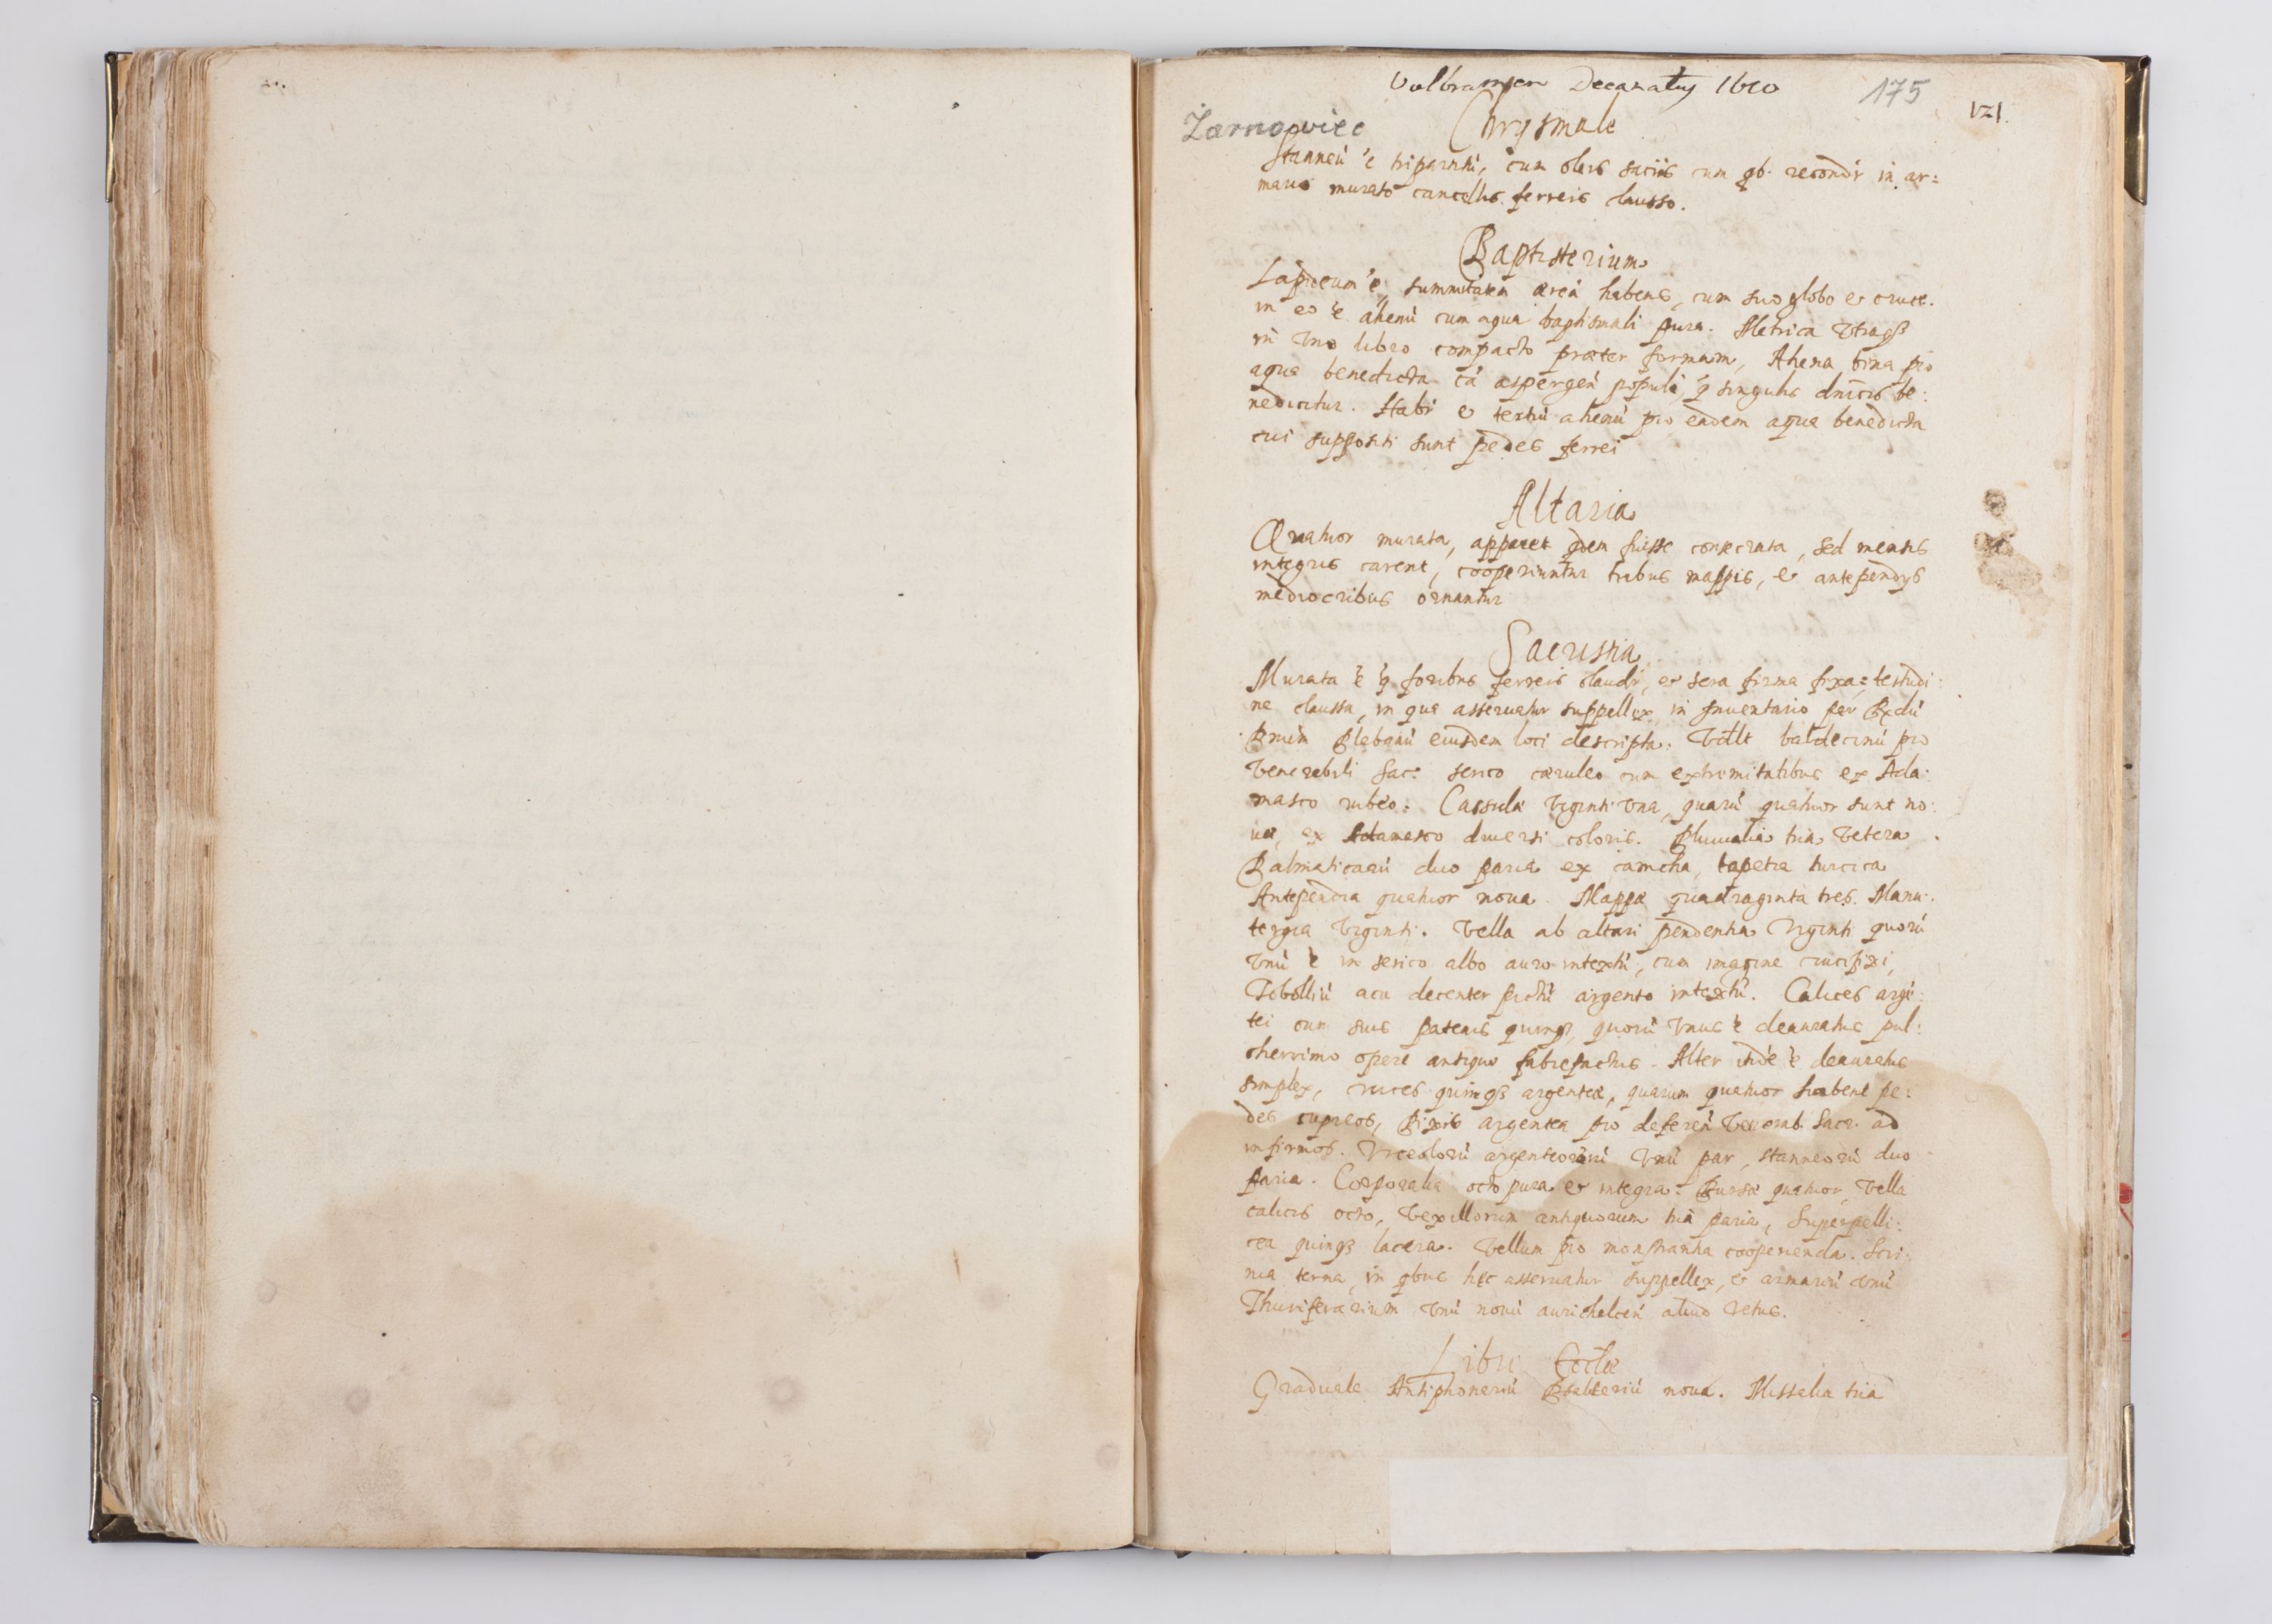 Volbramsen Decanatus 1610
175
121.
Żarnowiec
Chrysmale
Stanneũ ẽ tripartitũ, cum oleis sacris cum qb. recondr in ar=
mario murato cancellis ferreis clausso.
Baptisterium
Lapideum ẽ, summitatem aereã habens, cum suo globo et cruce.
in eo ẽ ahenũ cum aqua baptismali pura. Metrica utraqȝ
in uno libro compacto praeter formam, Ahena bina pro
aqua benedicta ad aspergeñ populũ q singulis dnicis be:
nedicitur. Habr et tertiũ ahenũ pro eadem aqua benedicta
cui suppositi sunt pedes ferrei
Altaria
Quatuor murata, apparet qdem fuisse consecrata, sed mensis
integris carent, cooperiuntur tribus mappis, et antependys
mediocribus ornantur
Sacristia
Murata ẽ q foribus ferreis claudr, et sera firma fixa = testudi:
ne claussa, in qua asseruatur suppellex in Inventario per Rxdũ
Plebanũ eiusdem loci descripta. baldecinũ pro
Venerabili Sac. serico caeruleo cum extremitatibus ex Ada:
masco rubeo. Cassulae viginti una, quarũ quatuor sunt no:
uae, ex Adamasco diuersi coloris. Pluuialia tria Vetera.
Dalmaticarũ duo paria ex camcha, tapetia turcica
Antependia quatuor noua. Mappae quadraginta tres. Manu:
tergia Viginti. Vella ab altari pendentia Viginti quorũ
Vnũ ẽ in serico albo auro intextũ, cum imagine crucifixi,
acu decenter pictũ argento intextũ. Calices argẽ:
tei cum suis patenis quinqȝ, quorũ Vnus ẽ deauratus pul:
cherrimo opere antiquo fabrefactus. Alter itidẽ ẽ deauratus
simplex, cruces quinqȝ argenteae, quarum quatuor habent pe:
des cupreos, Pixis argentea pro defereñ Venerab. Sacr. ad
infirmos. Vrceolorũ argenteorũ Vnũ par, stanneorũ duo
paria. Corporalia octo pura et integra. Bursae quatuor, Vella
calicis octo, Vexillorum antiquorum tria paria, Superpelli:
cea quinqȝ lacera. Vellum pro monstrantia cooperienda. Scri:
nia terna, in qbus hęc asseruatur suppellex, et armariũ Vnũ
Thuriferarium Vnũ nouũ aurichalceũ aliud Vetus.
Libri Eccłae
Graduale Antiphonariũ Psalteriũ noua. Missalia tria